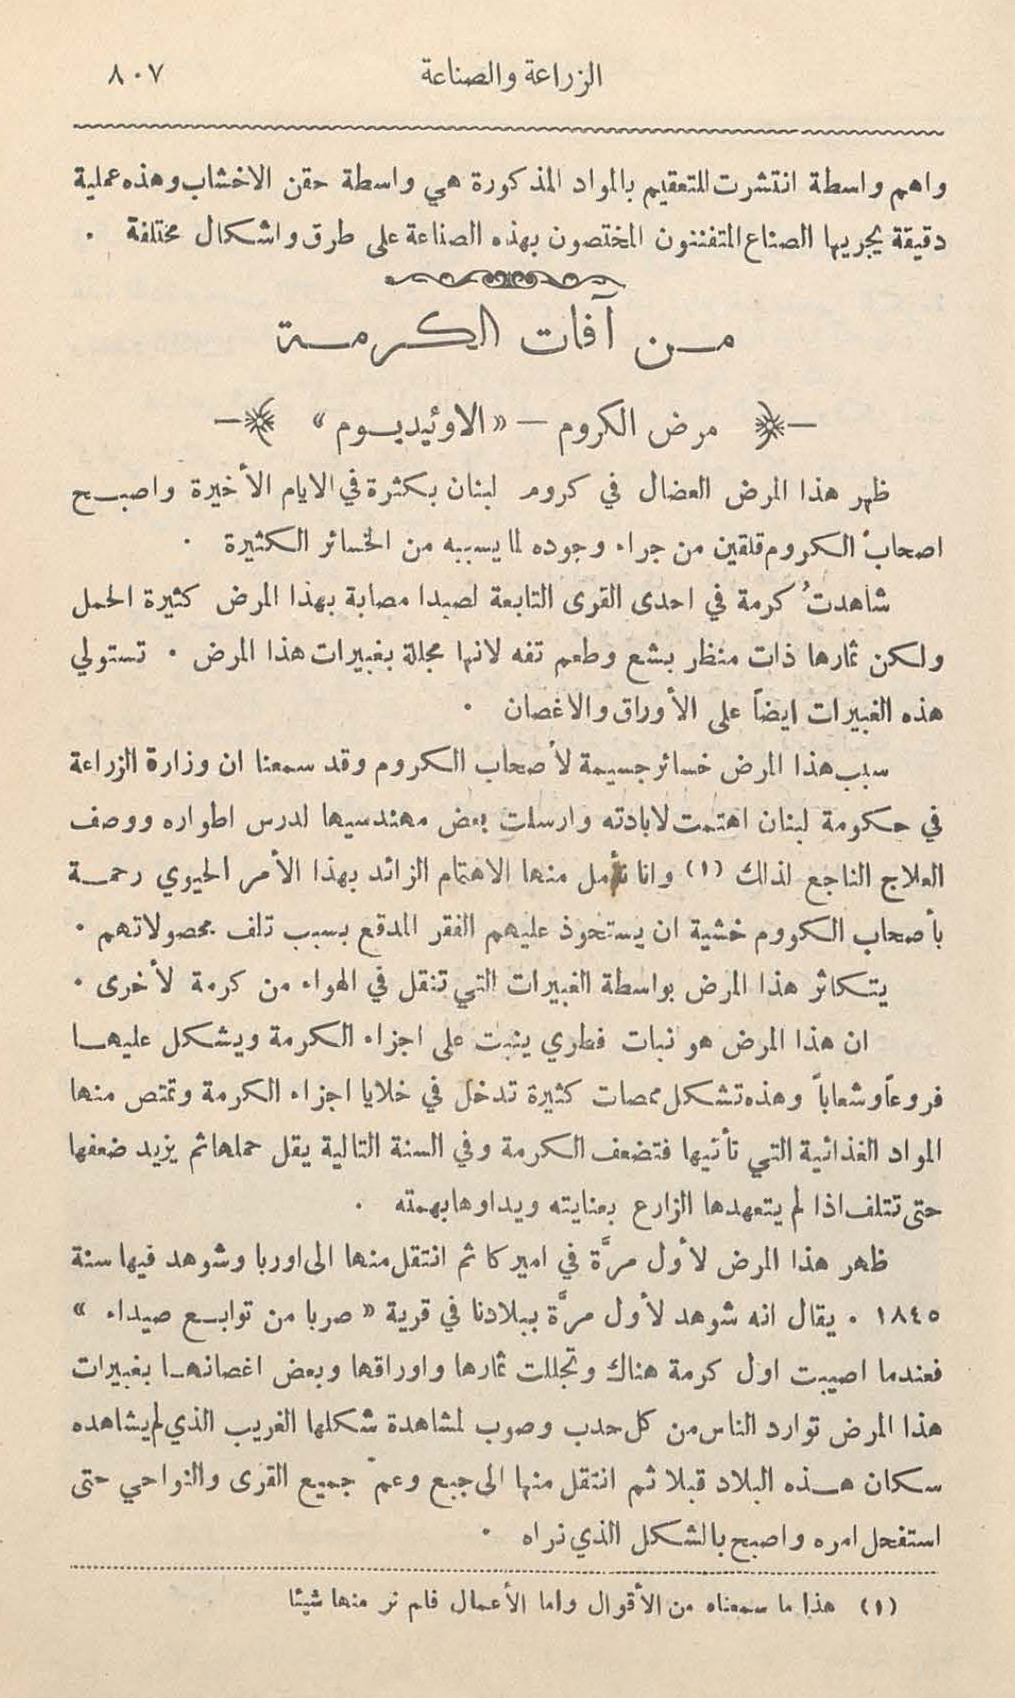 الزراعة والصناعة ٨٠٧
واهم واسطة انتشرت للتعقيم بالمواد المذكورة هي واسطة حقن الاخشاب وهذه عملية
دقيقة يجريها الصناع المتفننون المختصون بهذه الصناعة على طرق واشكال مختلفة .
من آفات الكرمة
مرض الكروم — «الاوئيديوم»
ظهر هذا المرض العضال في كروم لبنان بكثرة في الايام الأخيرة واصبح
اصحاب الكروم قلقين من جراء وجوده لما يسببه من الخسائر الكثيرة .
شاهدتُ كرمة في احدى القرى التابعة لصيدا مصابة بهذا المرض كثيرة الحمل
ولكن ثمارها ذات منظر بشع وطعم تفه لانها مجللة بغبيرات هذا المرض . تستولي
هذه الغبيرات ايضاً على الأوراق والاغصان .
سبب هذا المرض خسائر جسيمة لأصحاب الكروم وقد سمعنا ان وزارة الزراعة
في حكومة لبنان اهتمت لابادته وارسلت بعض مهندسيها لدرس اطواره ووصف
العلاج الناجع لذلك (١) وانا نأمل منها الاهتمام الزائد بهذا الأمر الحيوي رحمة
بأصحاب الكووم خشية ان يستحوذ عليهم الفقر المدقع بسبب تلف محصولاتهم .
يتكاثر هذا المرض بواسطة الغبيرات التي تنقل في الهواء من كرمة لأخرى .
ان هذا المرض هو نبات فطري ينبت على اجزاء الكرمة ويشكل عليها
فروعاً وشعاباً وهذه تشكل ممصات كثيرة تدخل في خلايا اجزاء الكرمة وتمتص منها
المواد الغذائية التي تأتيها فتضعف الكرمة وفي السنة التالية يقل حملها ثم يزيد ضعفها
حتى تتلف اذا لم يتعهدها الزارع بعنايته ويداوها بهمته .
ظهر هذا المرض لأول مرَّة في اميركا ثم انتقل منها الى اوربا وشوهد فيها سنة
١٨٤٥ . يقال انه شوهد لأول مرَّة ببلادنا في قرية «صربا من توابع صيداء»
فعندما اصيبت اول كرمة هناك وتجللت ثمارها واوراقها وبعض اغصانها بغبيرات
هذا المرض توارد الناس من كل حدب وصوب لمشاهدة شكلها الغريب الذي لم يشاهده
سكان هذه البلاد قبلا ثم انتقل منها الى جبع وعمّ جميع القرى والنواحي حتى
استفحل امره واصبح بالشكل الذي نراه .
(١) هذا ما سمعناه من الأقوال واما الأعمال فلم نر منها شيئا